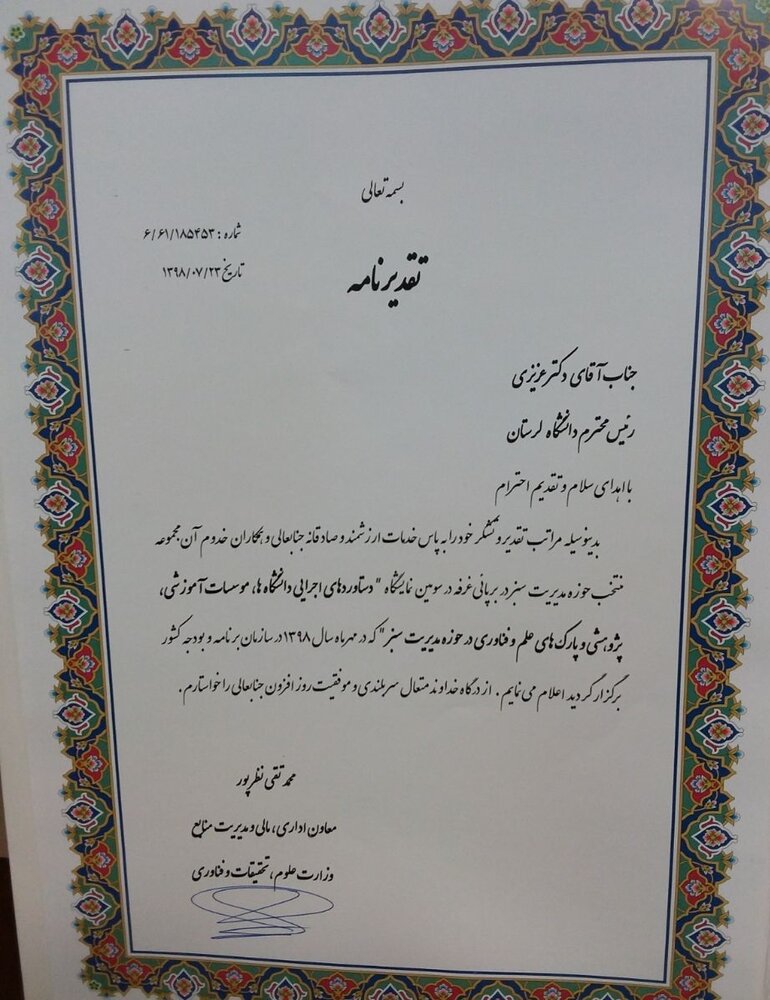 بسمه تعالی
شماره : ۶/۶۱/۱۸۵۴۵۳
تاریخ ۱۳۹۸/۰۷/۲۳
تقدیرنامه
جناب آقای دکتر عزیزی
رئیس محترم دانشگاه لرستان
با اهدای سلام و تقدیم احترام
بدینوسیله مراتب تقدیر و تشکر خود را به پاس خدمات ارزشمند و صادقانه جنابعالی و همکاران خدوم آن مجموعه
منتخب حوزه مدیریت سبز در برپائی غرفه در سومین نمایشگاه "دستاوردهای اجرایی دانشگاه ها، موسسات آموزشی،
پژوهشی و پارک های علم و فناوری در حوزه مدیریت سبز" که در مهرماه سال ۱۳۹۸ در سازمان برنامه و بودجه کشور
برگزار گردید اعلام می نمایم. از درگاه خداوند متعال سربلندی و موفقیت روز افزون جنابعالی را خواستارم.
محمد تقی نظرپور
معاون اداری، مالی و مدیریت منابع
وزارت علوم، تحقیقات و فناوری